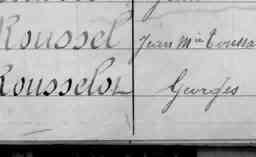 Roussel Jean Min Toussa
Rousselot Georges